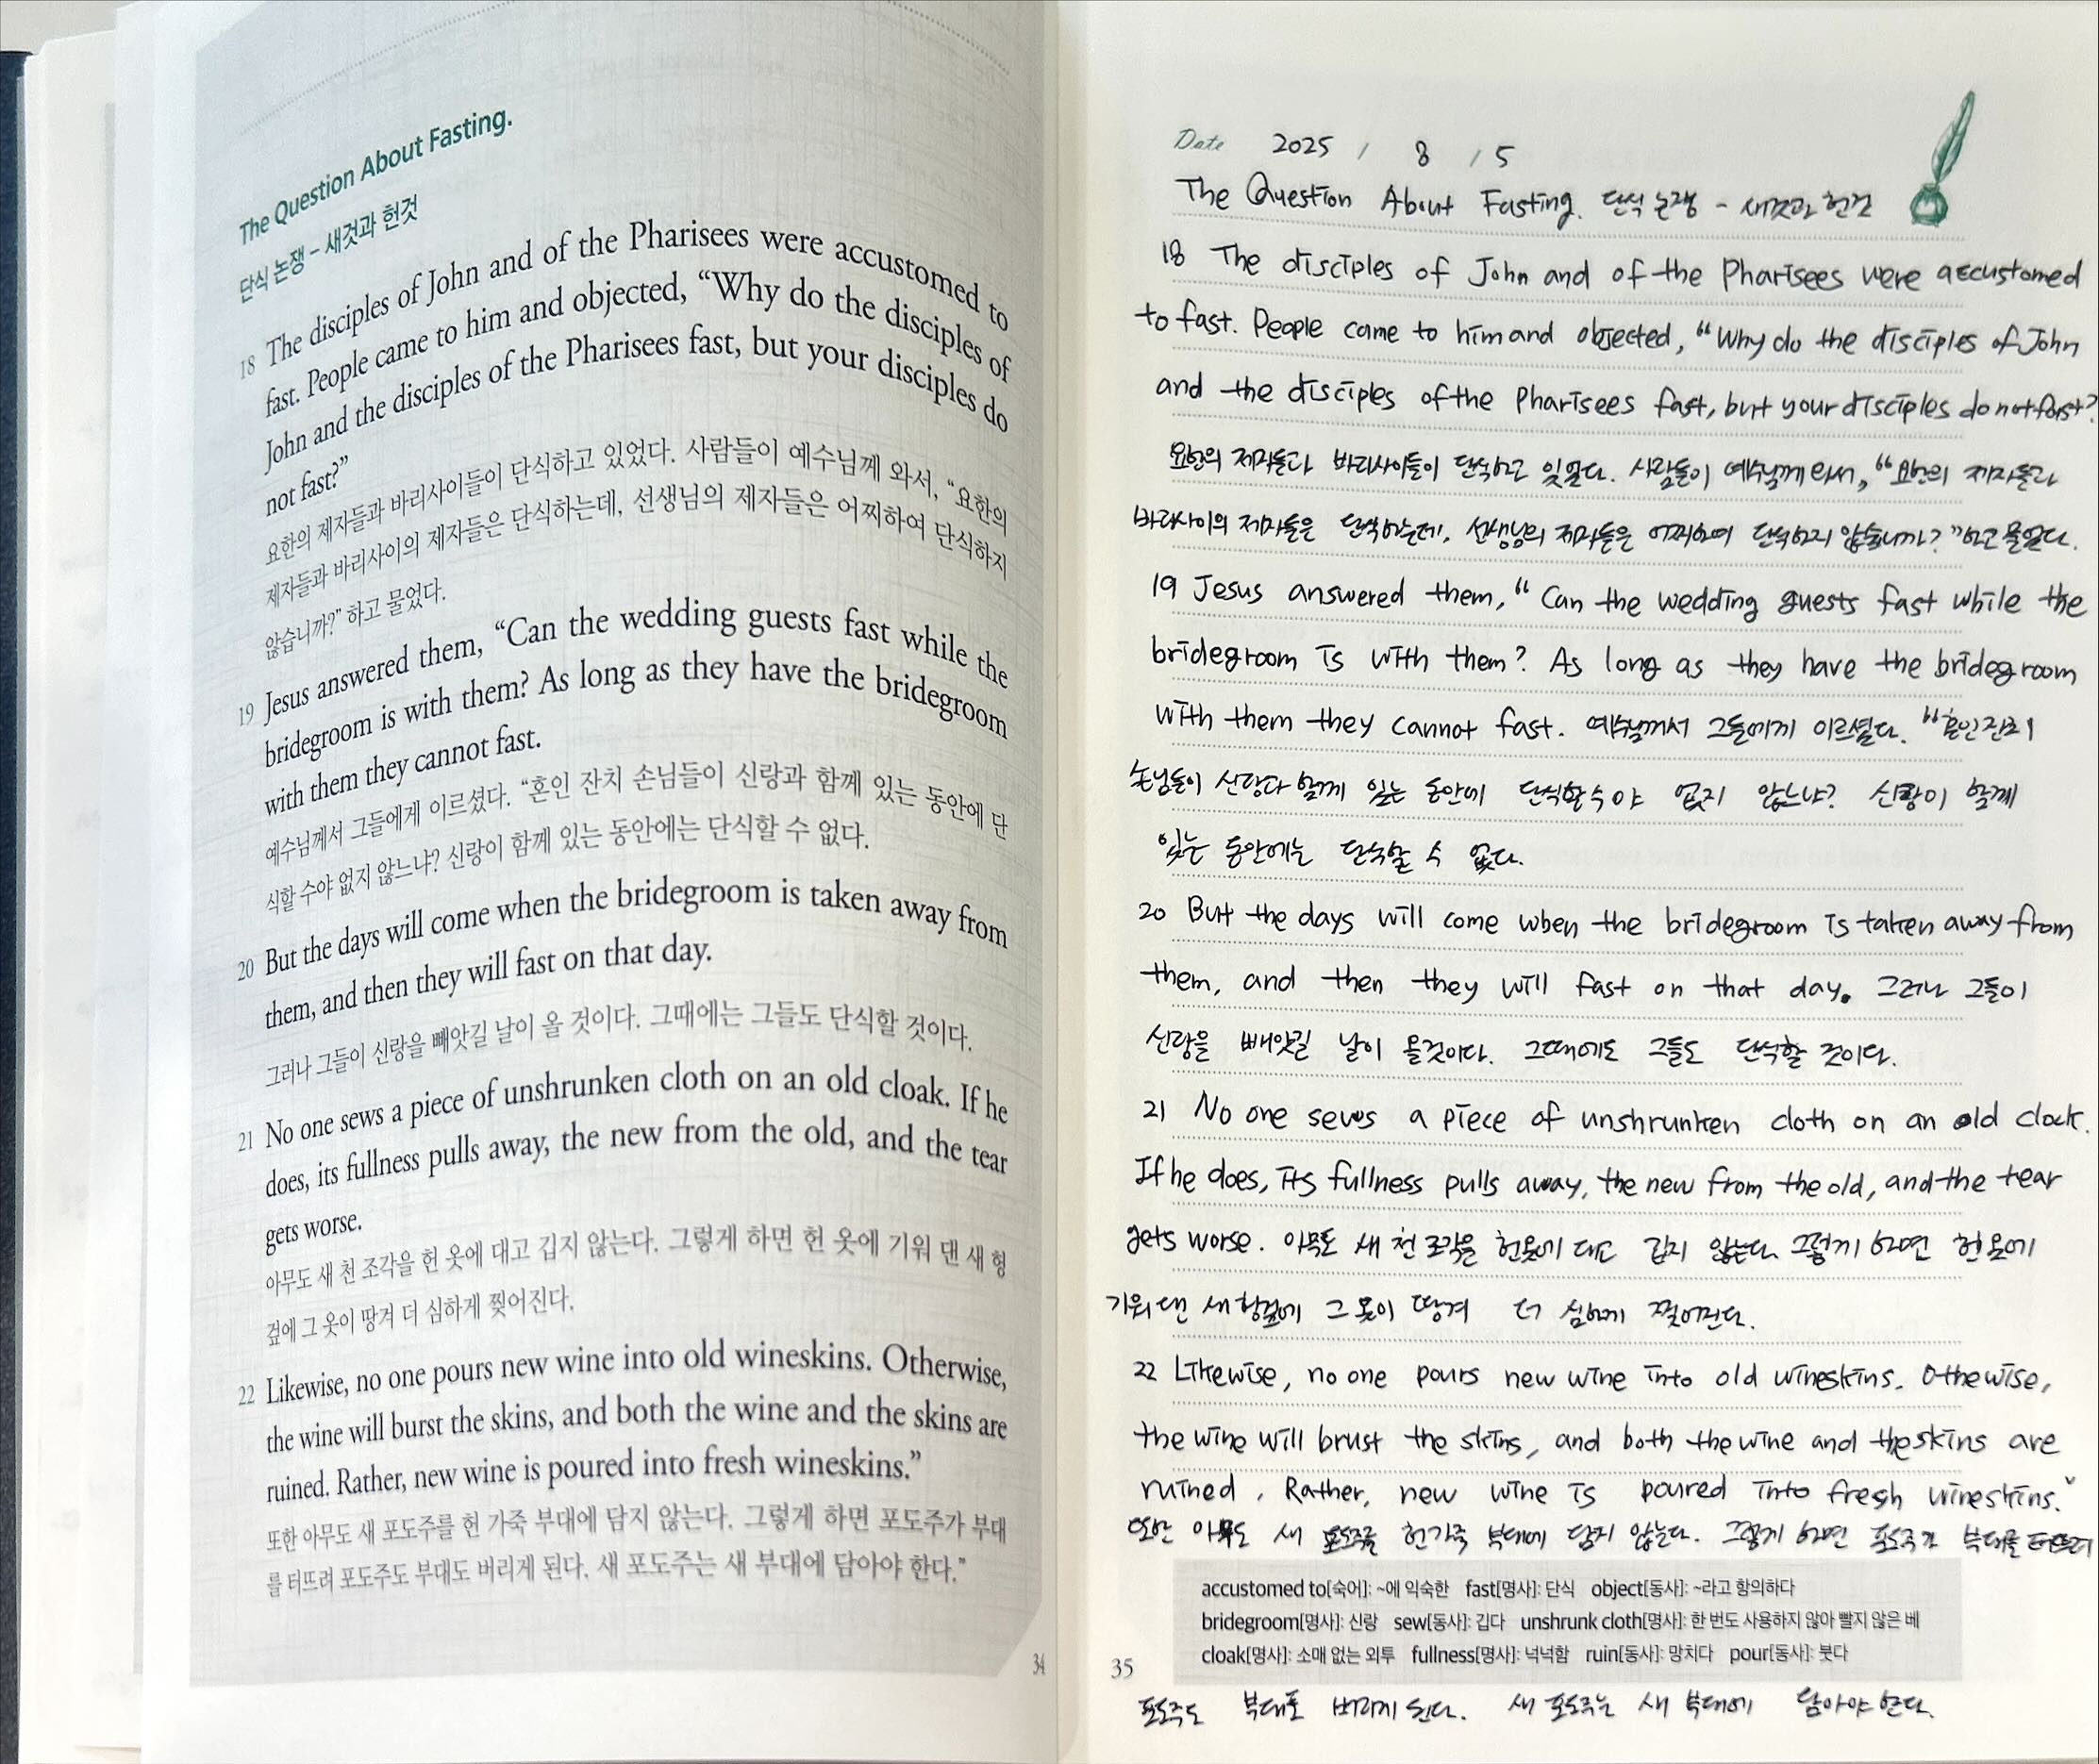 The Question About Fasting.
단식 논쟁 – 새것과 헌것
18 The disciples of John and of the Pharisees were accustomed to
fast. People came to him and objected, “Why do the disciples of
John and the disciples of the Pharisees fast, but your disciples do
not fast?”
요한의 제자들과 바리사이들이 단식하고 있었다. 사람들이 예수님께 와서, “요한의
제자들과 바리사이의 제자들은 단식하는데, 선생님의 제자들은 어찌하여 단식하지
않습니까?” 하고 물었다.
19 Jesus answered them, “Can the wedding guests fast while the
bridegroom is with them? As long as they have the bridegroom
with them they cannot fast.
예수님께서 그들에게 이르셨다. “혼인 잔치 손님들이 신랑과 함께 있는 동안에 단
식할 수야 없지 않느냐? 신랑이 함께 있는 동안에는 단식할 수 없다.
20 But the days will come when the bridegroom is taken away from
them, and then they will fast on that day.
그러나 그들이 신랑을 빼앗길 날이 올 것이다. 그때에는 그들도 단식할 것이다.
21 No one sews a piece of unshrunken cloth on an old cloak. If he
does, its fullness pulls away, the new from the old, and the tear
gets worse.
아무도 새 천 조각을 헌 옷에 대고 깁지 않는다. 그렇게 하면 헌 옷에 기워 댄 새 헝
겊에 그 옷이 땅겨 더 심하게 찢어진다.
22 Likewise, no one pours new wine into old wineskins. Otherwise,
the wine will burst the skins, and both the wine and the skins are
ruined. Rather, new wine is poured into fresh wineskins.”
또한 아무도 새 포도주를 헌 가죽 부대에 담지 않는다. 그렇게 하면 포도주가 부대
를 터뜨려 포도주도 부대도 버리게 된다. 새 포도주는 새 부대에 담아야 한다.”
34
Date 2025 / 8 / 5
The Question About Fasting. 단식 논쟁 - 새것과 헌것
18 The disciples of John and of the Pharisees were accustomed
to fast. People came to him and objected, “Why do the disciples of John
and the disciples of the Pharisees fast, but your disciples do not fast?
요한의 제자들과 바리사이들이 단식하고 있었다. 사람들이 예수님께 와서, “요한의 제자들과
바리사이의 제자들은 단식하는데, 선생님의 제자들은 어찌하여 단식하지 않습니까?” 하고 물었다.
19 Jesus answered them, “Can the wedding guests fast while the
bridegroom is with them? As long as they have the bridegroom
with them they cannot fast. 예수님께서 그들에게 이르셨다. “혼인 잔치
손님들이 신랑과 함께 있는 동안에 단식할 수야 없지 않느냐? 신랑이 함께
있는 동안에는 단식할 수 없다.
20 But the days will come when the bridegroom is taken away from
them, and then they will fast on that day. 그러나 그들이
신랑을 빼앗길 날이 올것이다. 그때에도 그들도 단식할 것이다.
21 No one sews a piece of unshrunken cloth on an old clock.
If he does, its fullness pulls away, the new from the old, and the tear
gets worse. 아무도 새 천 조각을 헌옷에 대고 깁지 않는다. 그렇게 하면 헌 옷에
기워 댄 새 헝겊에 그 옷이 땅겨 더 심하게 찢어진다.
22 Likewise, no one pours new wine into old wineskins. Othewise,
the wine will brust the skins, and both the wine and the skins are
ruined. Rather, new wine is poured into fresh wineskins.”
또한 아무도 새 포도주를 헌가죽 부대에 담지 않는다. 그렇게 하면 포도주가 부대를 터뜨려
accustomed to[숙어]: ~에 익숙한 fast[명사]: 단식 object[동사]: ~라고 항의하다
bridegroom[명사]: 신랑 sew[동사]: 깁다 unshrunk cloth[명사]: 한 번도 사용하지 않아 빨지 않은 베
cloak[명사]: 소매 없는 외투 fullness[명사]: 넉넉함 ruin[동사]: 망치다 pour[동사]: 붓다
35
포도주도 부대도 버리게 된다. 새 포도주는 새 부대에 담아야 한다.